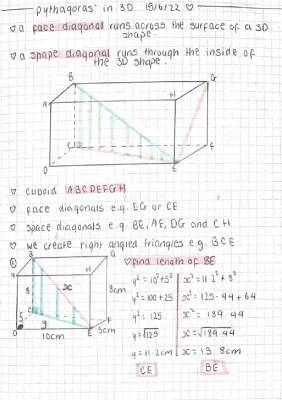 Pythagoras' in 3D 15/6/22 ♡
♡ a face diagonal runs across the surface of a 3D
shape.
♡ a space diagonal runs through the inside of
the 3D shape.
B
G
A
H
C
F
D
E
♡ cuboid ABCDEFGH
♡ face diagonals e.g. EG or CE
♡ space diagonals e.g. BE, AF, DG and CH
♡ we create right angled triangles e.g. BCE
① B
G
♡ find length of BE
H
8
x
8cm
C
F
y
D
E
5cm
10cm
y² = 10² + 5²
y² = 100 + 25
y² = 125
y = √125
y = 11.2cm
CE
x² = 11.2² + 8²
x² = 125.44 + 64
x² = 189.44
x = √189.44
x = 13.8cm
BE